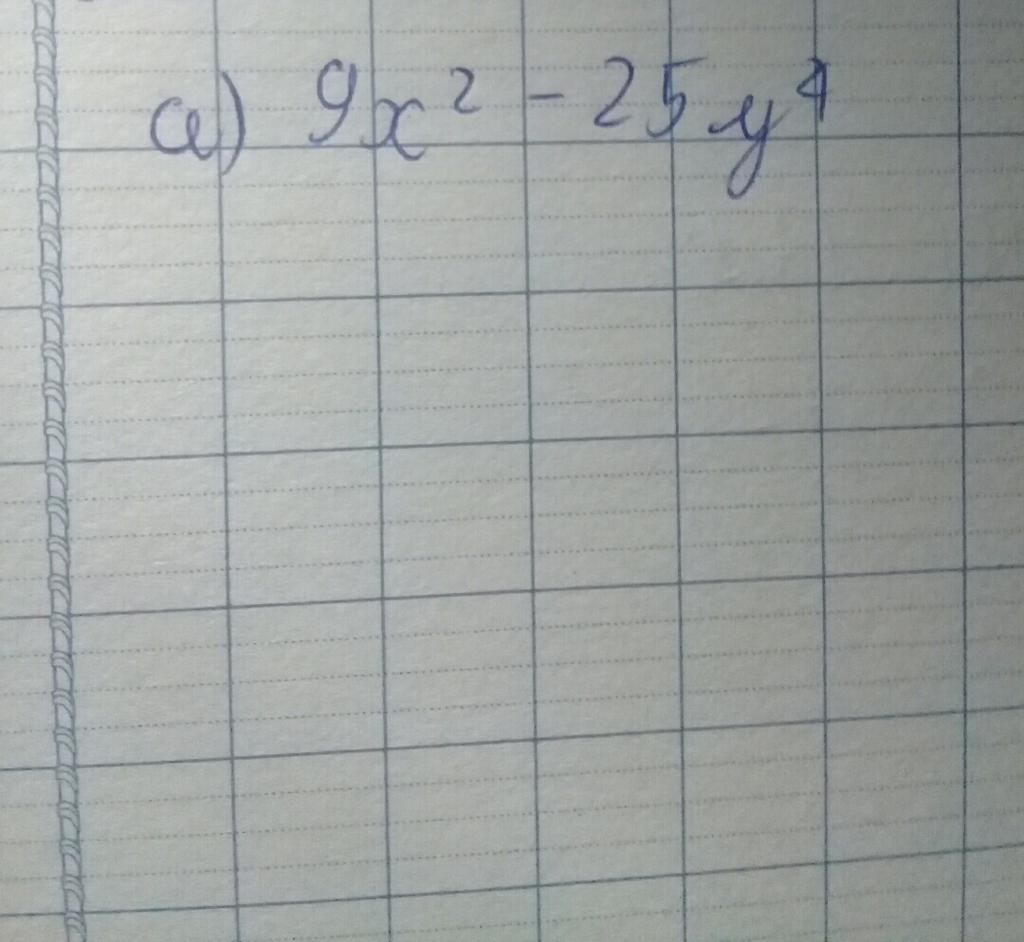 a) 9x² - 25y⁴